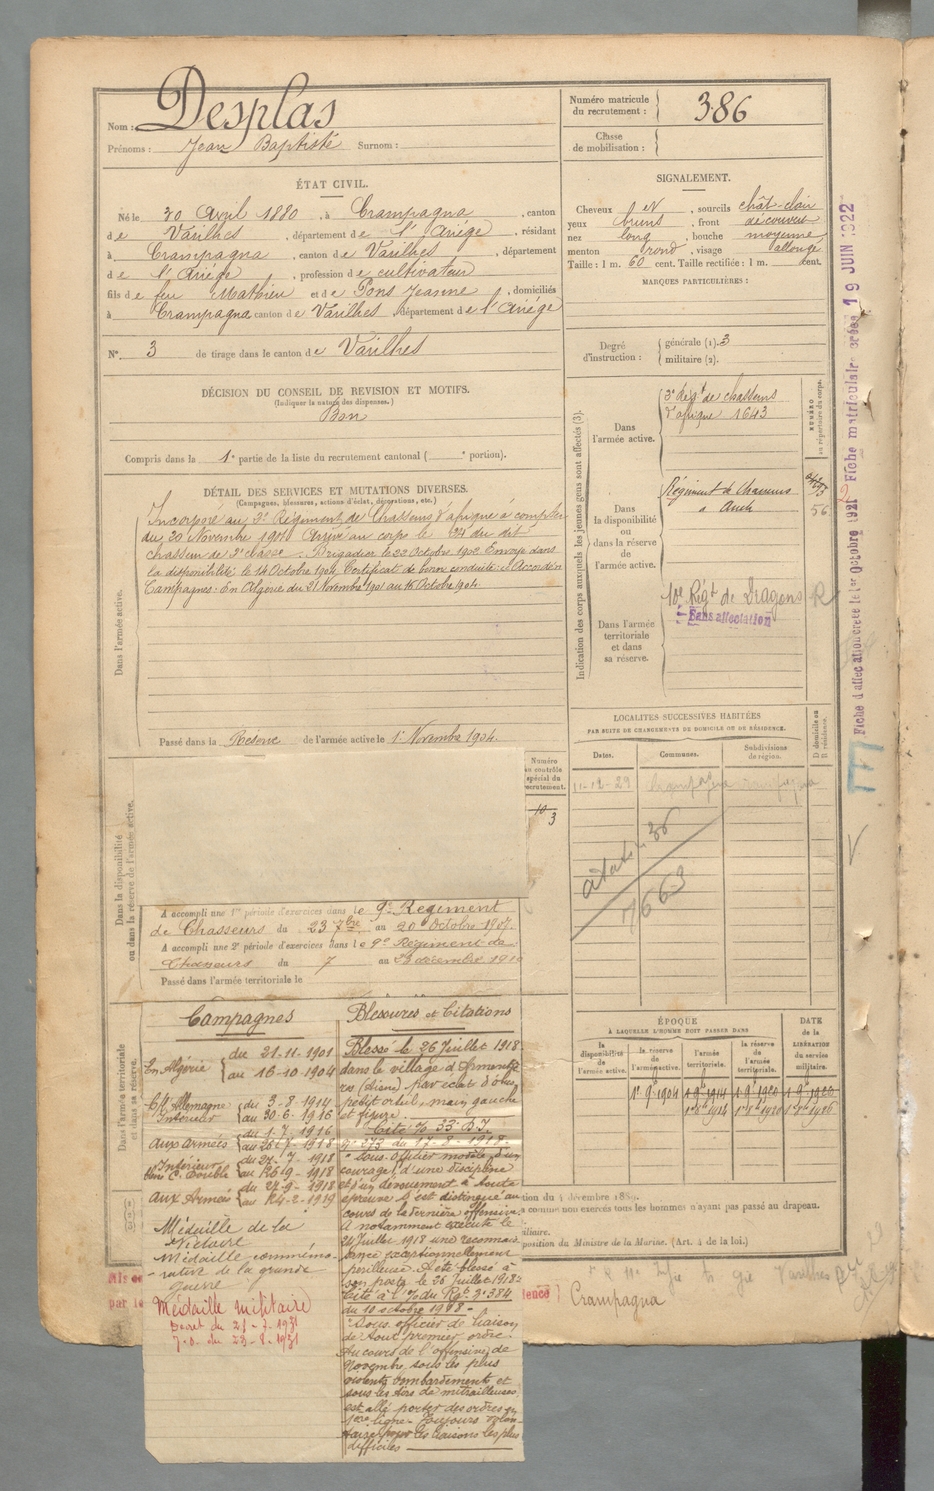 Nom : Desplas
Prénoms : Jean Baptiste Surnom :
Numéro matricule du recrutement : 386
Classe de mobilisation :
ÉTAT CIVIL.
Né le 20 Avril 1880, à Crampagna, canton
de Varilhes, département de l'Ariège, résidant
à Crampagna, canton de Varilhes, département
de l'Ariège, profession de cultivateur
fils de feu Mathieu et de Pons Jeanne, domiciliés
à Crampagna canton de Varilhes, département de l'Ariège
N° 3 de tirage dans le canton de Varilhes
SIGNALEMENT.
Cheveux et, sourcils chât-clair
yeux bruns, front découvert
nez long, bouche moyenne
menton rond, visage allongé
Taille : 1 m. 60 cent. Taille rectifiée : 1 m. cent.
MARQUES PARTICULIÈRES :
Degré d'instruction : générale (1). 3
militaire (2).
DÉCISION DU CONSEIL DE REVISION ET MOTIFS.
(Indiquer la nature des dispenses.)
Bon
Compris dans la 1e partie de la liste du recrutement cantonal ( e portion).
DÉTAIL DES SERVICES ET MUTATIONS DIVERSES.
(Campagnes, blessures, actions d'éclat, décorations, etc.)
Incorporé au 3e Régiment de Chasseurs d'afrique à compter
du 20 Novembre 1901 Arrivé au corps le dit
chasseur de 2e classe. Brigadier le 22 Octobre 1902 Envoyé dans
la disponibilité le 14 Octobre 1904. Certificat de bonne conduite : Accordé
Campagnes : En Algérie du 21 Novembre 1901 au 16 Octobre 1904.
Dans l'armée active.
Passé dans la Réserve de l'armée active le 1er Novembre 1904.
Indication des corps auxquels les jeunes gens sont affectés (3).
NUMÉRO au répertoire du corps.
Dans l'armée active.
3e Régt de chasseurs
d'afrique 1643
Dans la disponibilité ou dans la réserve de l'armée active.
Régiment de Chasseurs
à Auch
56
Dans l'armée territoriale et dans sa réserve.
10e Régt de Dragons R
Sans affectation
Fiche d'affectation créée le 1er Octobre 1921 Fiche matriculaire créée 19 JUIN 1922
LOCALITÉS SUCCESSIVES HABITÉES
PAR SUITE DE CHANGEMENTS DE DOMICILE OU DE RÉSIDENCE.
Dates. Communes. Subdivisions de région. D domicile ou R résidence.
11-12-29 Crampagna
7663
Numéro au contrôle spécial du recrutement.
10
3
Dans la disponibilité ou dans la réserve de l'armée active.
A accompli une 1re période d'exercices dans le 9e Régiment
de Chasseurs du 23 7bre au 20 Octobre 1907.
A accompli une 2e période d'exercices dans le 9e Régiment de
Chasseurs du 7 au 23 décembre 1910
Passé dans l'armée territoriale le
Dans l'armée territoriale et dans sa réserve.
Campagnes
En Algérie du 21-11-1901
au 16-10-1904
C/ Allemagne
Intérieur du 3-8-1914
au 30-6-1916
aux armées du 1-7-1916
au 26-7-1918
Intérieur du 27-7-1918
au 26-9-1918
aux Armées du 27-9-1918
au 24-2-1919
Médaille de la
Victoire
Médaille commémo-
-rative de la grande
guerre
Médaille militaire
Décret du 21-7-1931
J.O. du 23-8-1931
Blessures et Citations
Blessé le 26 Juillet 1918
dans le village d'Armentiè
res (Aisne) par éclat d'obus
petit orteil, main gauche
et figure.
Cité % 33e B.I.
N° 273 du 17-8-1918-
"Sous-Officier modèle d'un
courage, d'une discipline
et d'un dévouement à toute
épreuve s'est distingué au
cours de la dernière offensive
A notamment exécuté le
24 Juillet 1918 une reconnais
sance exceptionnellement
périlleuse. A été blessé à
son poste le 26 Juillet 1918"
Cité à l'% du Rgt N° 384
du 10 octobre 1918-
"Sous-officier de liaison
de tout premier ordre.
Au cours de l'offensive de
Novembre, sous les plus
violents bombardements et
sous les tirs de mitrailleuses
est allé porter des ordres en
1ère ligne- Toujours volon-
taire pour les liaisons les plus
difficiles
ÉPOQUE
À LAQUELLE L'HOMME DOIT PASSER DANS
DATE de la LIBÉRATION du service militaire.
la disponibilité de l'armée active. la réserve de l'armée active. l'armée territoriale. la réserve de l'armée territoriale.
1er 9bre 1904 1er 9bre 1914 1er 9bre 1920 1er 9bre 1926
tion du 4 décembre 1889.
comme non exercés tous les hommes n'ayant pas passé au drapeau.
iliaire.
position du Ministre de la Marine. (Art. 4 de la loi.)
par le
dence
Crampagna